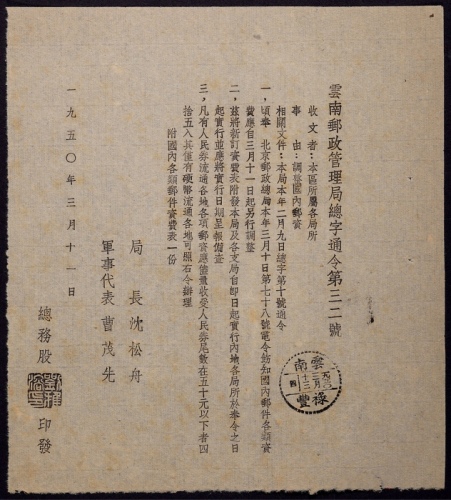 雲南郵政管理局總字通令第三二號
收文者：本區所屬各局所
事由：調整國內郵資
相關文件：本局本年二月九日總字第十號通令
一，頃奉 北京郵政總局本年三月十日第七十八號電令飭知國內郵件各類資
費應自三月十一日起另行調整
二，茲將新訂資費表附發本局及各支局自即日起實行內地各局所於奉令之日
起實行並應將實行日期呈報備查
三，凡有人民券流通各地各項郵資應儘量收受人民券尾數在五十元以下者四
捨五入其僅有硬幣流通各地可照右令辦理
附國內各類郵件資費表一份
局長沈松舟
軍事代表曹茂先
一九五〇年三月十一日
總務股 印發
雲南
三月
十三
祿豐